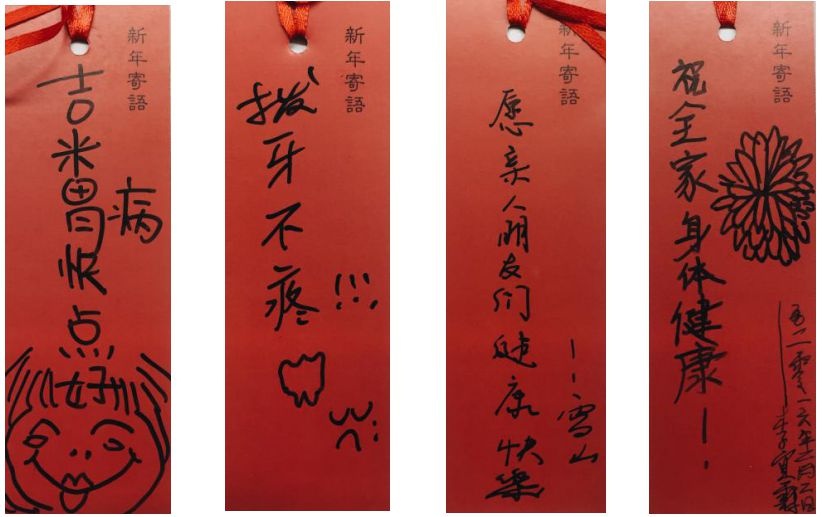 新年寄語
吉米胃快点好
病
新年寄語
拨牙不疼!!!
新年寄語
愿亲人朋友们健康快樂
——雪山
新年寄語
祝全家身体健康！
二零一六年二月二日